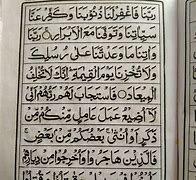 رَبَّنَا فَاغْفِرْ لَنَا ذُنُوبَنَا وَكَفِّرْ عَنَّا
سَيِّاٰتِنَا وَتَوَفَّنَا مَعَ الْاَبْرَارِ ○ رَبَّنَا
وَاٰتِنَا مَا وَعَدْتَّنَا عَلٰى رُسُلِكَ
وَلَا تُخْزِنَا يَوْمَ الْقِيٰمَةِ اِنَّكَ لَا تُخْلِفُ
الْمِيْعَادَ ○ فَاسْتَجَابَ لَهُمْ رَبُّهُمْ اَنِّىْ
لَآ اُضِيْعُ عَمَلَ عَامِلٍ مِّنْكُمْ مِّنْ
ذَكَرٍ اَوْ اُنْثٰى بَعْضُكُمْ مِّنْ بَعْضٍ
فَالَّذِيْنَ هَاجَرُوْا وَاُخْرِجُوْا مِنْ دِيَارِهِمْ